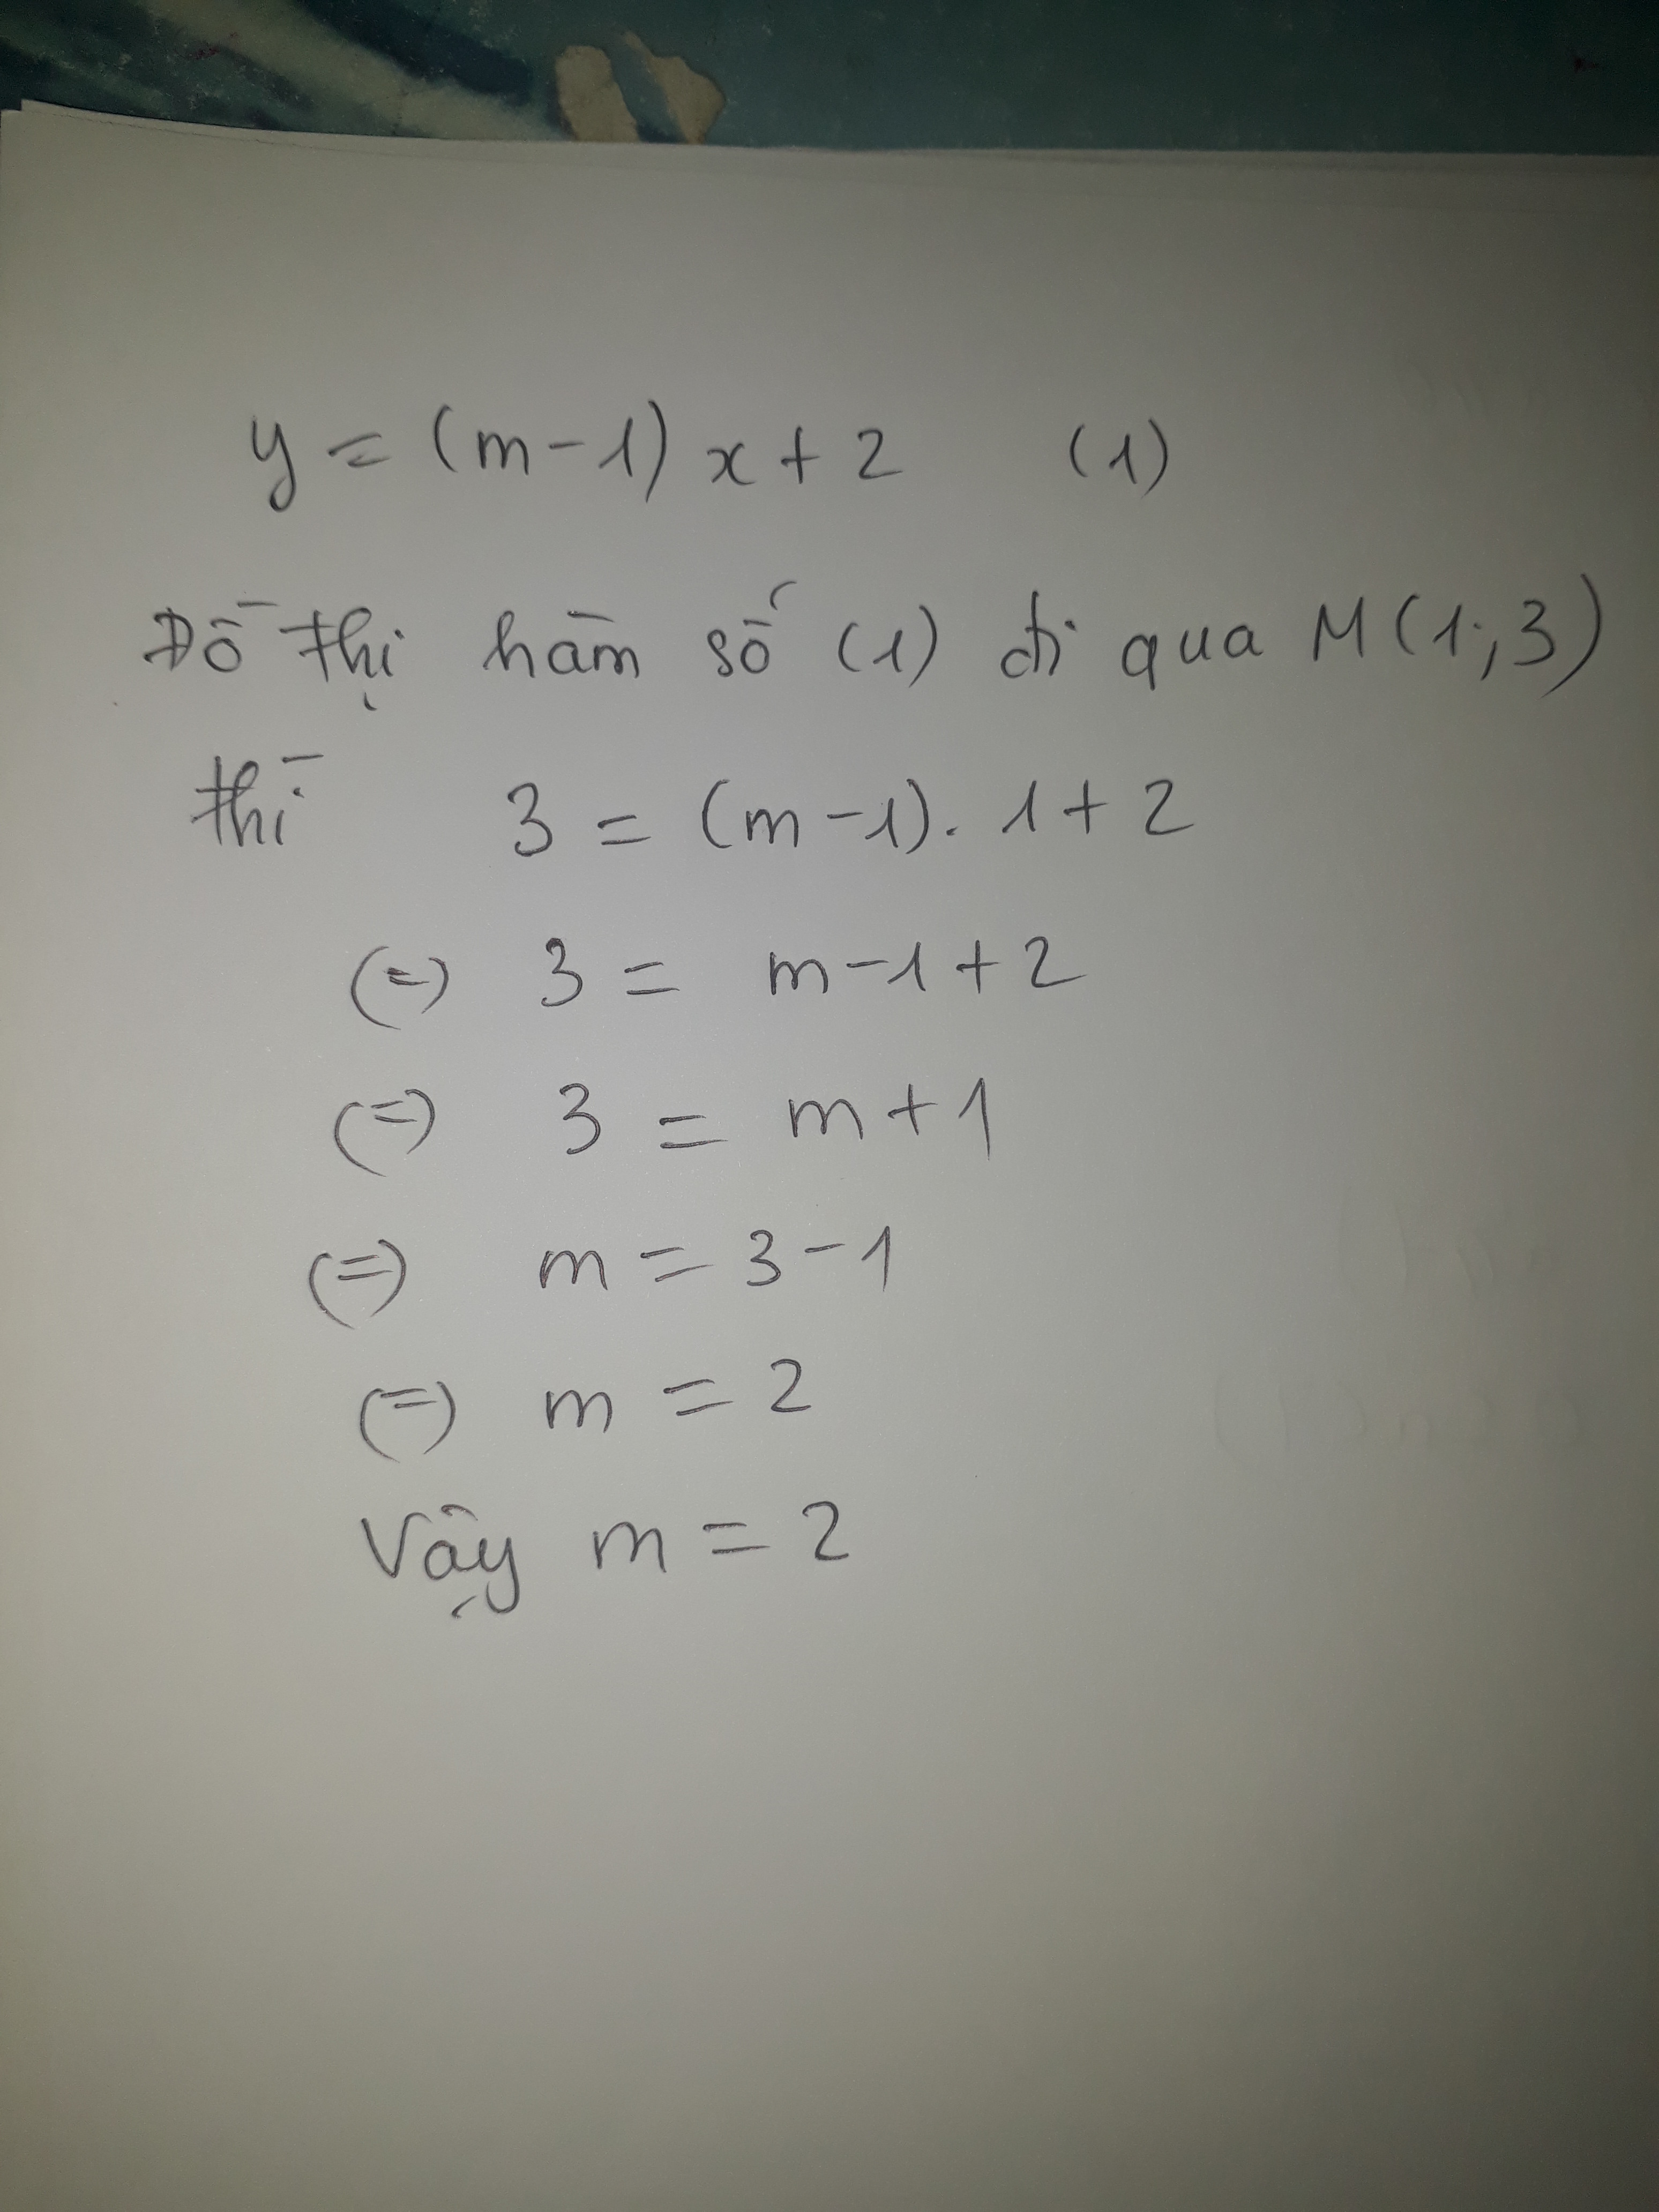 y = (m-1) x + 2 (1)
Đồ thị hàm số (1) đi qua M(1;3)
thì 3 = (m-1). 1 + 2
(=) 3 = m-1+2
(=) 3 = m+1
(=) m = 3-1
(=) m = 2
Vậy m = 2